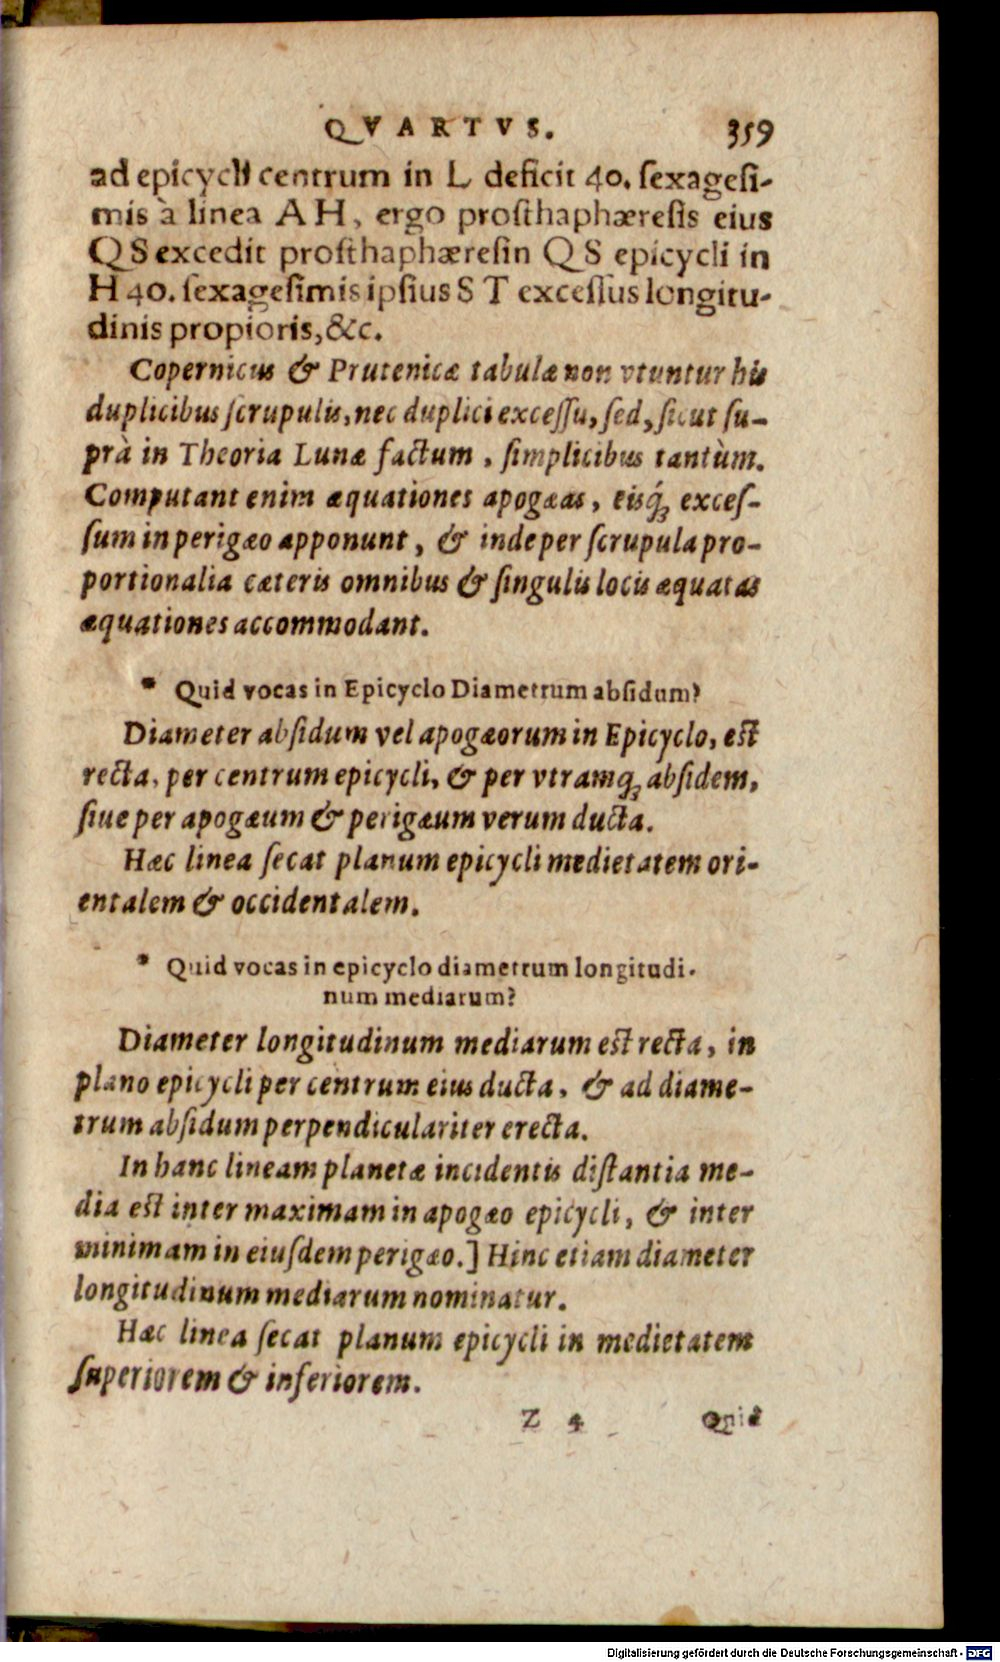 QVARTVS. 359
ad epicycli centrum in L deficit 40. ſexageſi-
mis à linea AH, ergo proſthaphæreſis eius
QS excedit proſthaphæreſin QS epicycli in
H 40. ſexageſimis ipſius ST exceſſus longitu-
dinis propioris, &c.
Copernicus & Prutenicæ tabulæ non vtuntur his
duplicibus ſcrupulis, nec duplici exceſſu, ſed, ſicut ſu-
prà in Theoria Lunæ factum, ſimplicibus tantùm.
Computant enim æquationes apogæas, eisq́; exceſ-
ſum in perigæo apponunt, & inde per ſcrupula pro-
portionalia cæteris omnibus & ſingulis locis æquatas
æquationes accommodant.
* Quid vocas in Epicyclo Diametrum abſidum?
Diameter abſidum vel apogæorum in Epicyclo, eſt
recta, per centrum epicycli, & per vtramq; abſidem,
ſiue per apogæum & perigæum verum ducta.
Hæc linea ſecat planum epicycli medietatem ori-
entalem & occidentalem.
* Quid vocas in epicyclo diametrum longitudi-
num mediarum?
Diameter longitudinum mediarum eſt recta, in
plano epicycli per centrum eius ducta, & ad diame-
trum abſidum perpendiculariter erecta.
In hanc lineam planetæ incidentis diſtantia me-
dia eſt inter maximam in apogæo epicycli, & inter
minimam in eiuſdem perigæo.] Hinc etiam diameter
longitudinum mediarum nominatur.
Hæc linea ſecat planum epicycli in medietatem
ſuperiorem & inferiorem.
Z 4 Quid
Digitalisierung gefördert durch die Deutsche Forschungsgemeinschaft - DFG